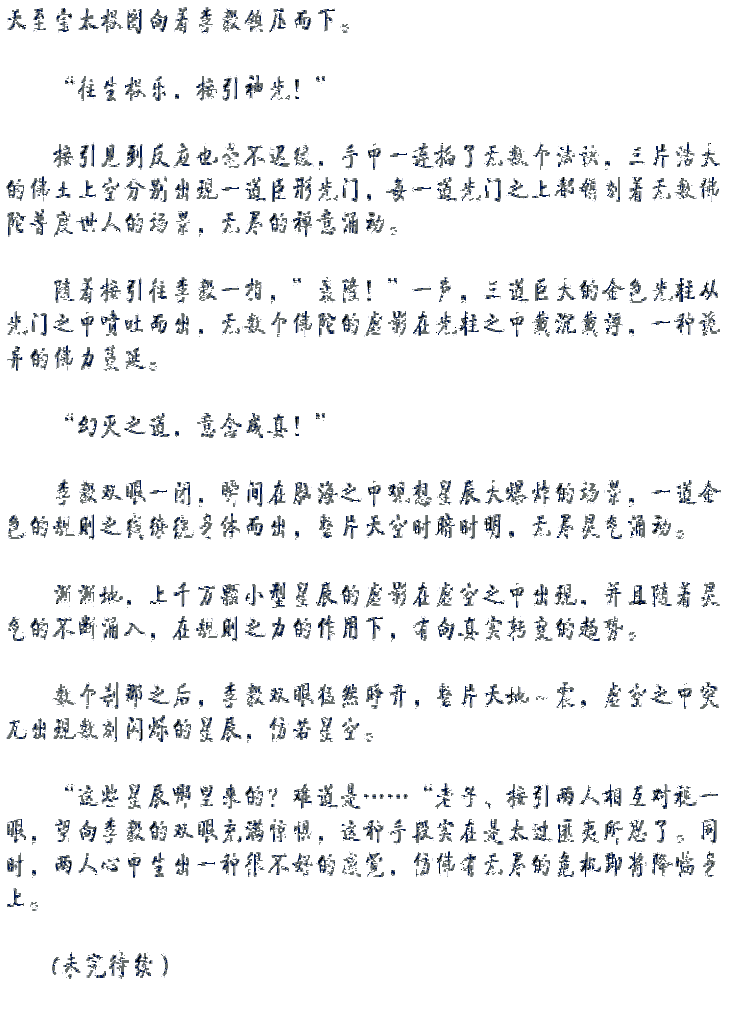 天至宝太极图向着李毅镇压而下。
“往生极乐，接引神光！“
接引见到反应也毫不迟缓，手中一连掐了无数个法诀，三片浩大
的佛土上空分别出现一道巨形光门，每一道光门之上都镌刻着无数佛
陀普度世人的场景，无尽的禅意涌动。
随着接引往李毅一指，“轰隆！“一声，三道巨大的金色光柱从
光门之中喷吐而出，无数个佛陀的虚影在光柱之中载沉载浮，一种诡
异的佛力蔓延。
“幻灭之道，意念成真！”
李毅双眼一闭，瞬间在脑海之中观想星辰大爆炸的场景，一道金
色的规则之线缠绕身体而出，整片天空时暗时明，无尽灵气涌动。
渐渐地，上千万颗小型星辰的虚影在虚空之中出现，并且随着灵
气的不断涌入，在规则之力的作用下，有向真实转变的趋势。
数个刹那之后，李毅双眼猛然睁开，整片天地一震，虚空之中突
兀出现数刻闪烁的星辰，仿若星空。
“这些星辰哪里来的？难道是……“老子、接引两人相互对视一
眼，望向李毅的双眼充满惊惧，这种手段实在是太过匪夷所思了。同
时，两人心中生出一种很不好的感觉，仿佛有无尽的危机即将降临身
上。
(未完待续)